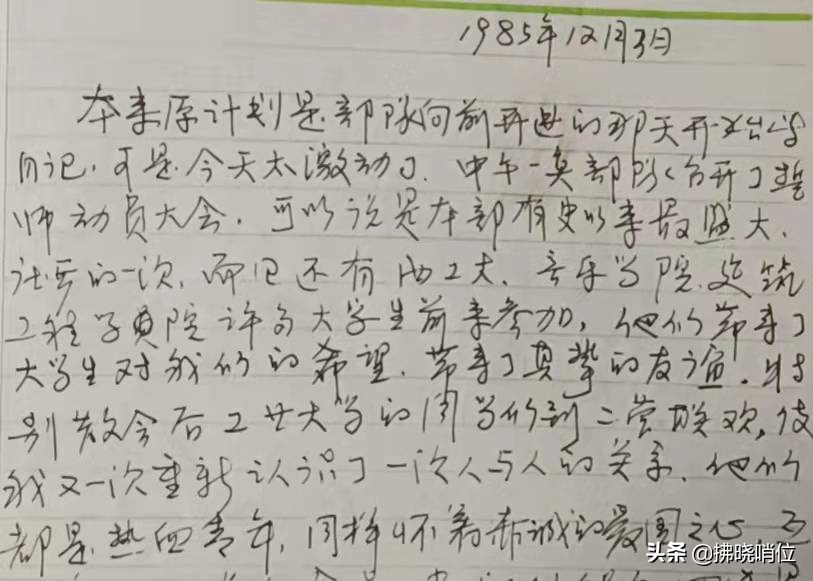 1985年12月3日
本来原计划是部队向前开进的那天开始写
日记,可是今天太激动了,中午一英部队召开了誓
师动员大会,可以说是本部有史以来最盛大、
的一次,而且还有西工大、音乐学院、建筑
工程学院许多大学生前来参加,他们带来了
大学生对我们的希望,带来了真挚的友谊。特
别散会后工大学的同学们到二营联欢,使
我又一次重新认识了一次人与人的关系,他们
都是热血青年,同样怀着赤诚的爱国之心,
头条 @拂晓哨位